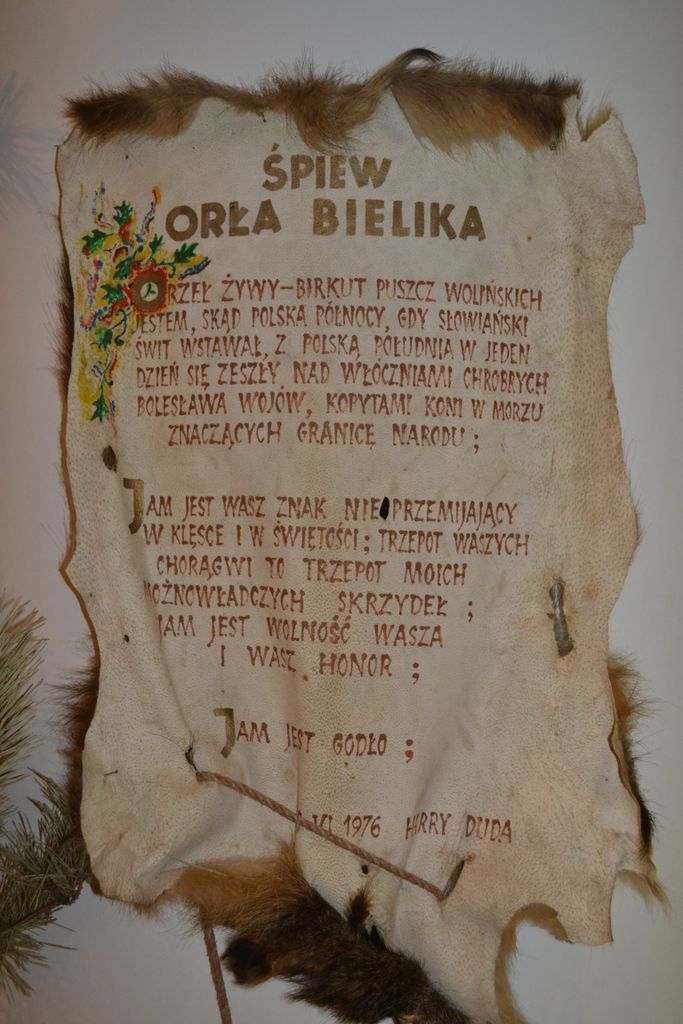 ŚPIEW
ORŁA BIELIKA
ORZEŁ ŻYWY-BIRKUT PUSZCZ WOLIŃSKICH
JESTEM, SKĄD POLSKA PÓŁNOCY, GDY SŁOWIAŃSKI
ŚWIT WSTAWAŁ, Z POLSKĄ POŁUDNIA W JEDEN
DZIEŃ SIĘ ZESZŁY NAD WŁÓCZNIAMI CHROBRYCH
BOLESŁAWA WOJÓW, KOPYTAMI KONI W MORZU
ZNACZĄCYCH GRANICĘ NARODU ;
JAM JEST WASZ ZNAK NIEPRZEMIJAJĄCY
W KLĘSCE I W ŚWIĘTOŚCI ; TRZEPOT WASZYCH
CHORĄGWI TO TRZEPOT MOICH
MOŻNOWŁADCZYCH SKRZYDEŁ ;
JAM JEST WOLNOŚĆ WASZA
I WASZ HONOR ;
JAM JEST GODŁO ;
VI 1976 HARRY DUDA